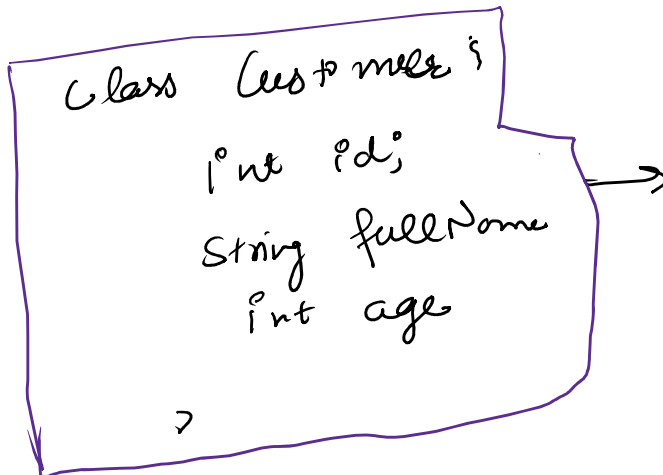 class Customer {
int id;
String fullName
int age
}